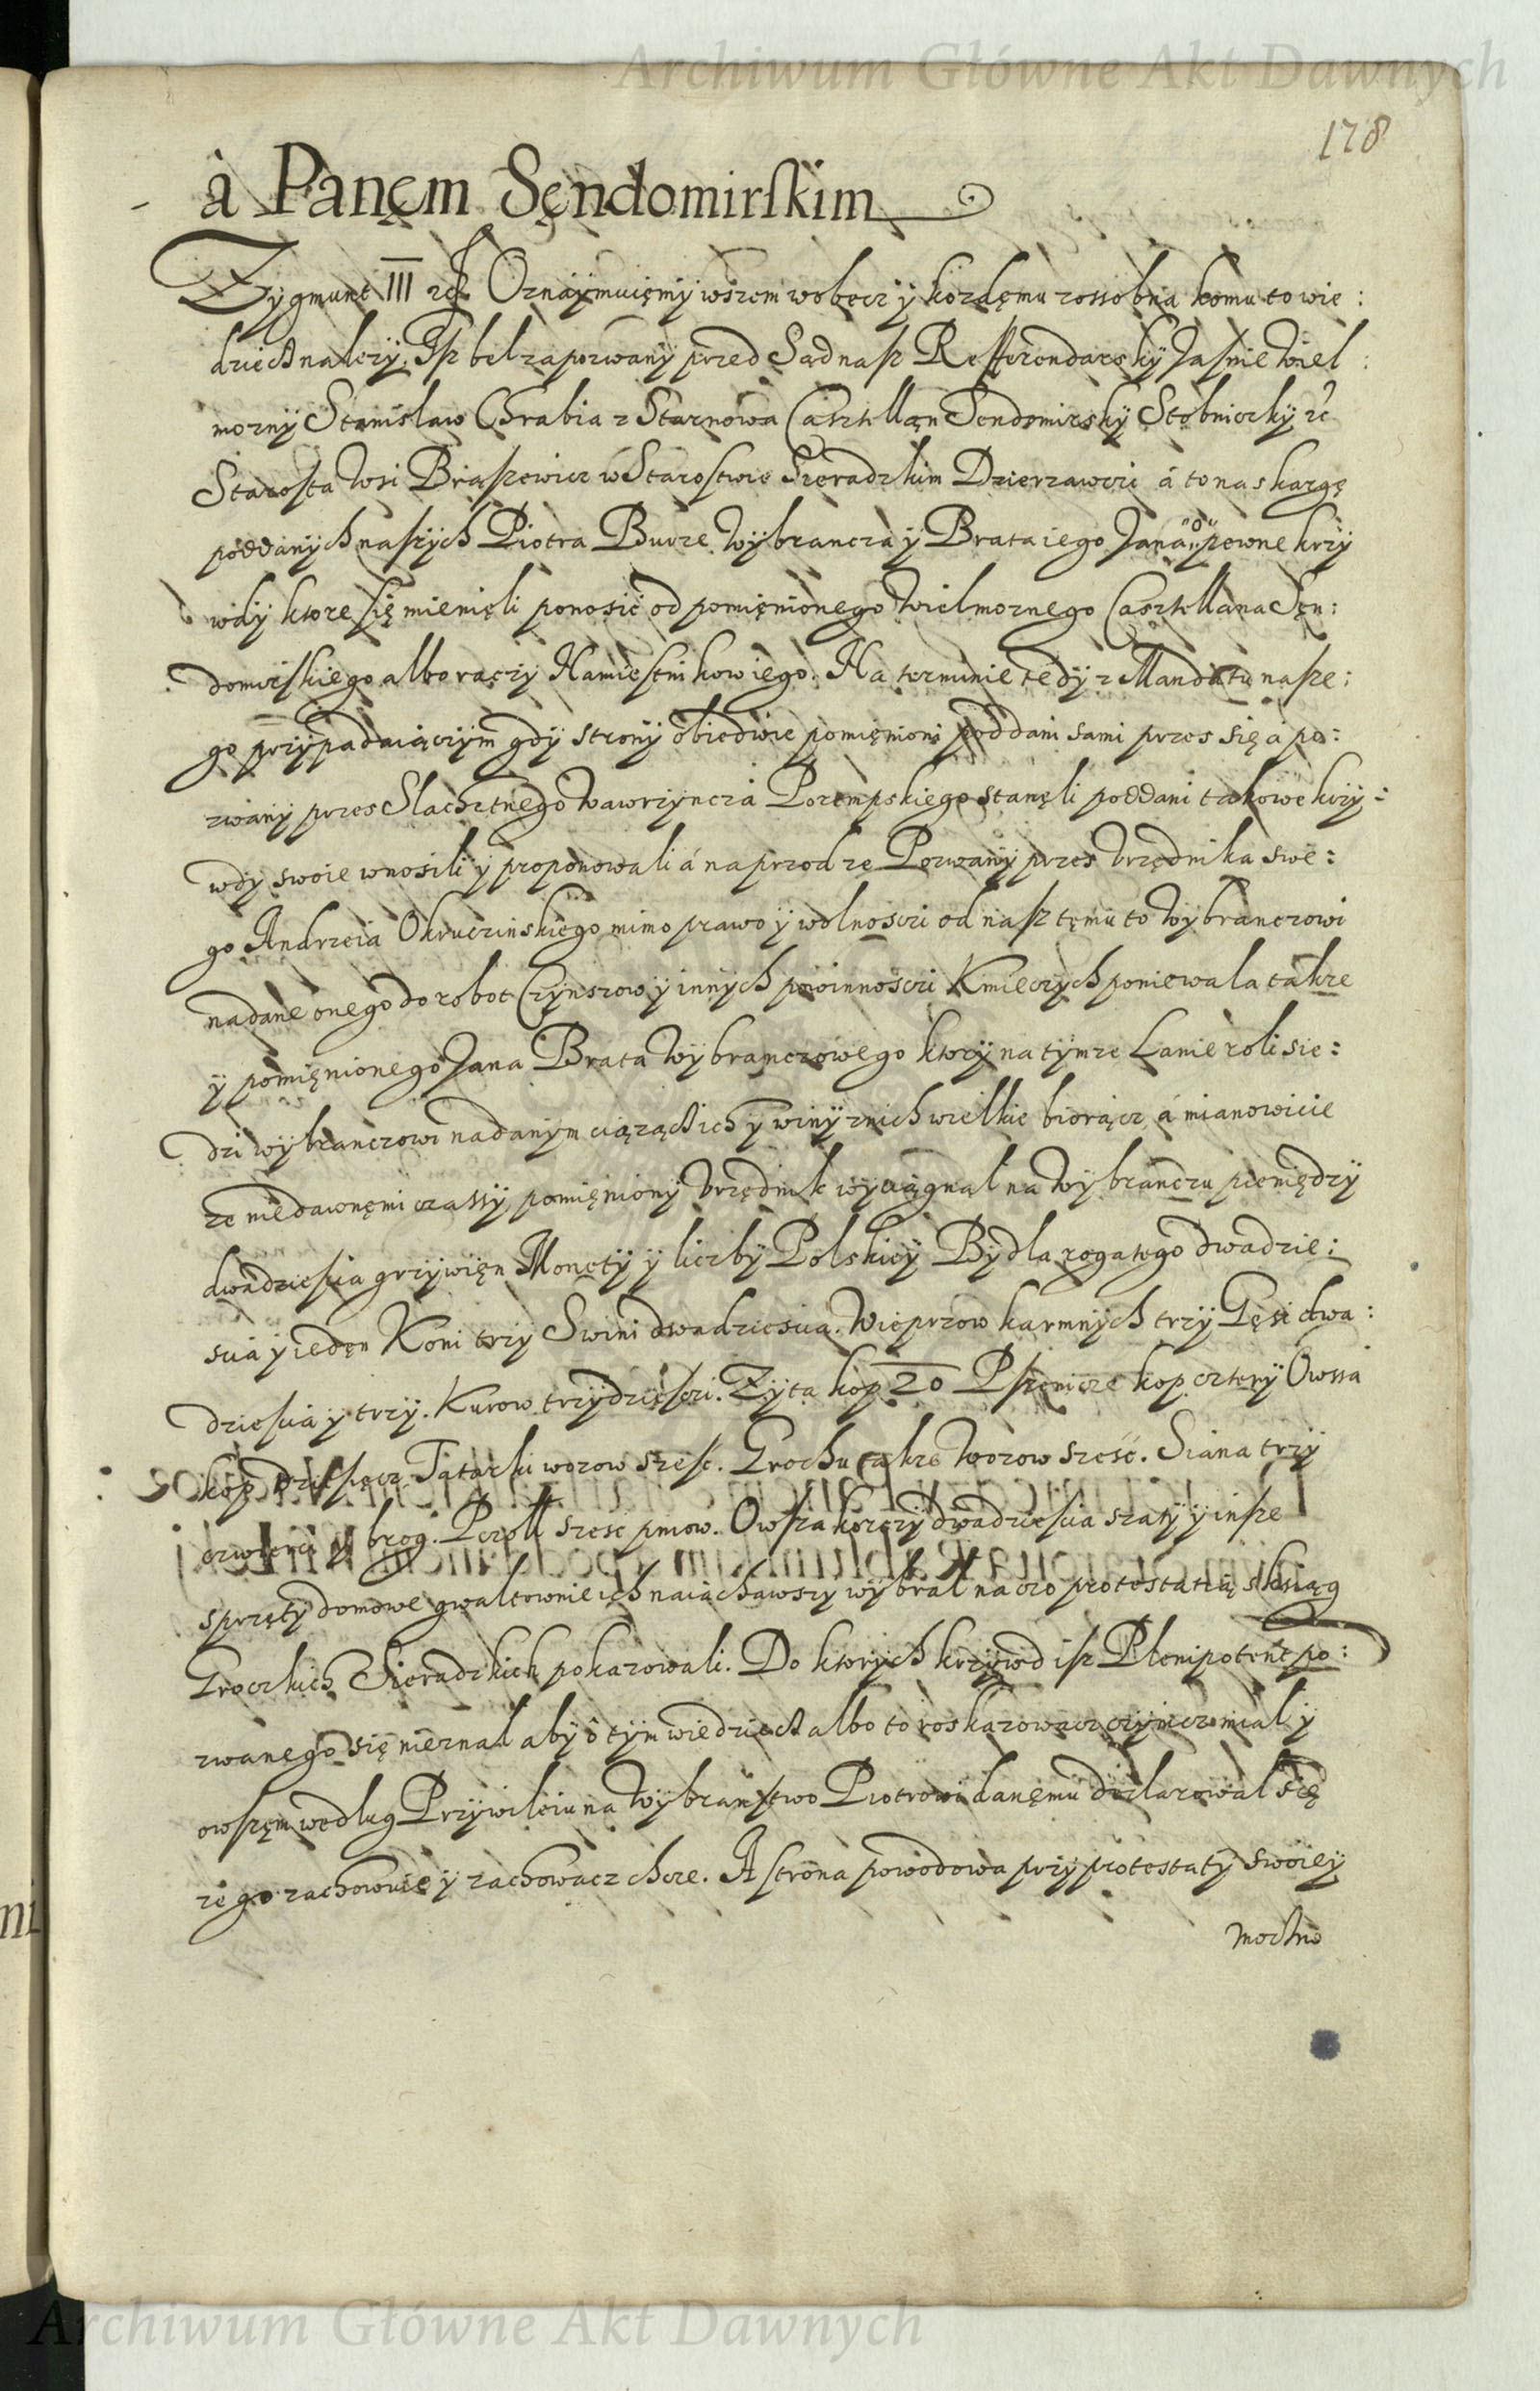 Archiwum Główne Akt Dawnych
178
à Panęm Sęndomirskim
Zygmunt III etc Oznaÿmuięmÿ wszem wobecz ÿ kozdęmu rossobna komu to wie:
dziecz nalezÿ. Isz bel zapozwanÿ przed Sąd nasz Refferendarskÿ Jasnie Wiel:
moznÿ Stanisław Grabia z Starnowa Casztellan Sendomirskÿ Stobniczkÿ etc
Starosta Wsi Biaszewicz w Starostwie Szeradzkim Dzierzawczi á to na skargę
poddanÿch naszÿch Piotra Burze Wÿbrancza ÿ Brata iego Jana o pewne krzÿ
wdÿ ktore się mienięli ponosić od pomięnionego Wielmoznego Casztellana Sęn:
domirskiego albo raczÿ Namiestnikow iego. Na terminie tedÿ z Mandatu nasze:
go przÿpadaiączÿm gdÿ stronÿ obiedwie pomięnioni poddani sami przes się a po:
zwanÿ przes Slachetnego Wawrzÿncza Porempskiego stanęli poddani takowe krzÿ:
wdÿ swoie wnosili ÿ proponowali á naprzod ze Pozwanÿ przes Urzędnika swe:
go Andrzeia Okruczinskiego mimo prawo ÿ wolnosczi od nasz tęmu to Wÿbranczowi
nadane onego do robot Czÿnszow ÿ innÿch powinnosczi Kmieczÿch poniewala takze
ÿ pomięnionego Jana Brata Wÿbranczowego ktorÿ na tÿmze Lanie roli sie:
dzi wÿbranczowi nadanÿm ciązącz ich ÿ winÿ z nich wielkie biorącz, á mianowicie
ze niedawnęmi czassÿ, pomięnionÿ Urzędnik wÿciągnąl na Wÿbranczu pieniędzÿ
dwadziescia grzÿwięn Monetÿ ÿ liczbÿ Polskieÿ Bÿdla rogatego dwadzie:
scia ÿ iedęn Koni trzÿ Swini dwadziescia. Wieprzow karmnÿch trzÿ Gęsi dwa:
dziescia ÿ trzÿ. Kurow trzÿdziesczi. Zÿta kop 20 Pszenicze kop cztery Owssa
kop dziesięcz Tatarki worow szesć. Grochu takze Worow szesć. Siana trzÿ
czwierci ÿ brog. Pczoll szesc pniow. Owsza korczÿ dwadziescia szatÿ ÿ insze
sprzętÿ domowe gwaltownie ich naiachawszy wÿbrał na czo protestatię s ksiąg
Groczkich Sieradzkich pokazowali. Do ktorÿch krzÿwd isz Plenipotent po:
zwanego się nieznal abÿ o tÿm wiedziecz albo to roskazowacz czÿnicz mial ÿ
owszęm wedlug Przÿwileiu na Wÿbraństwo Piotrowi danęmu declarowal się
ze go zachowuie ÿ zachowacz chce. A strona powodowa przÿ protestatÿ swoieÿ
moczno
Archiwum Główne Akt Dawnych